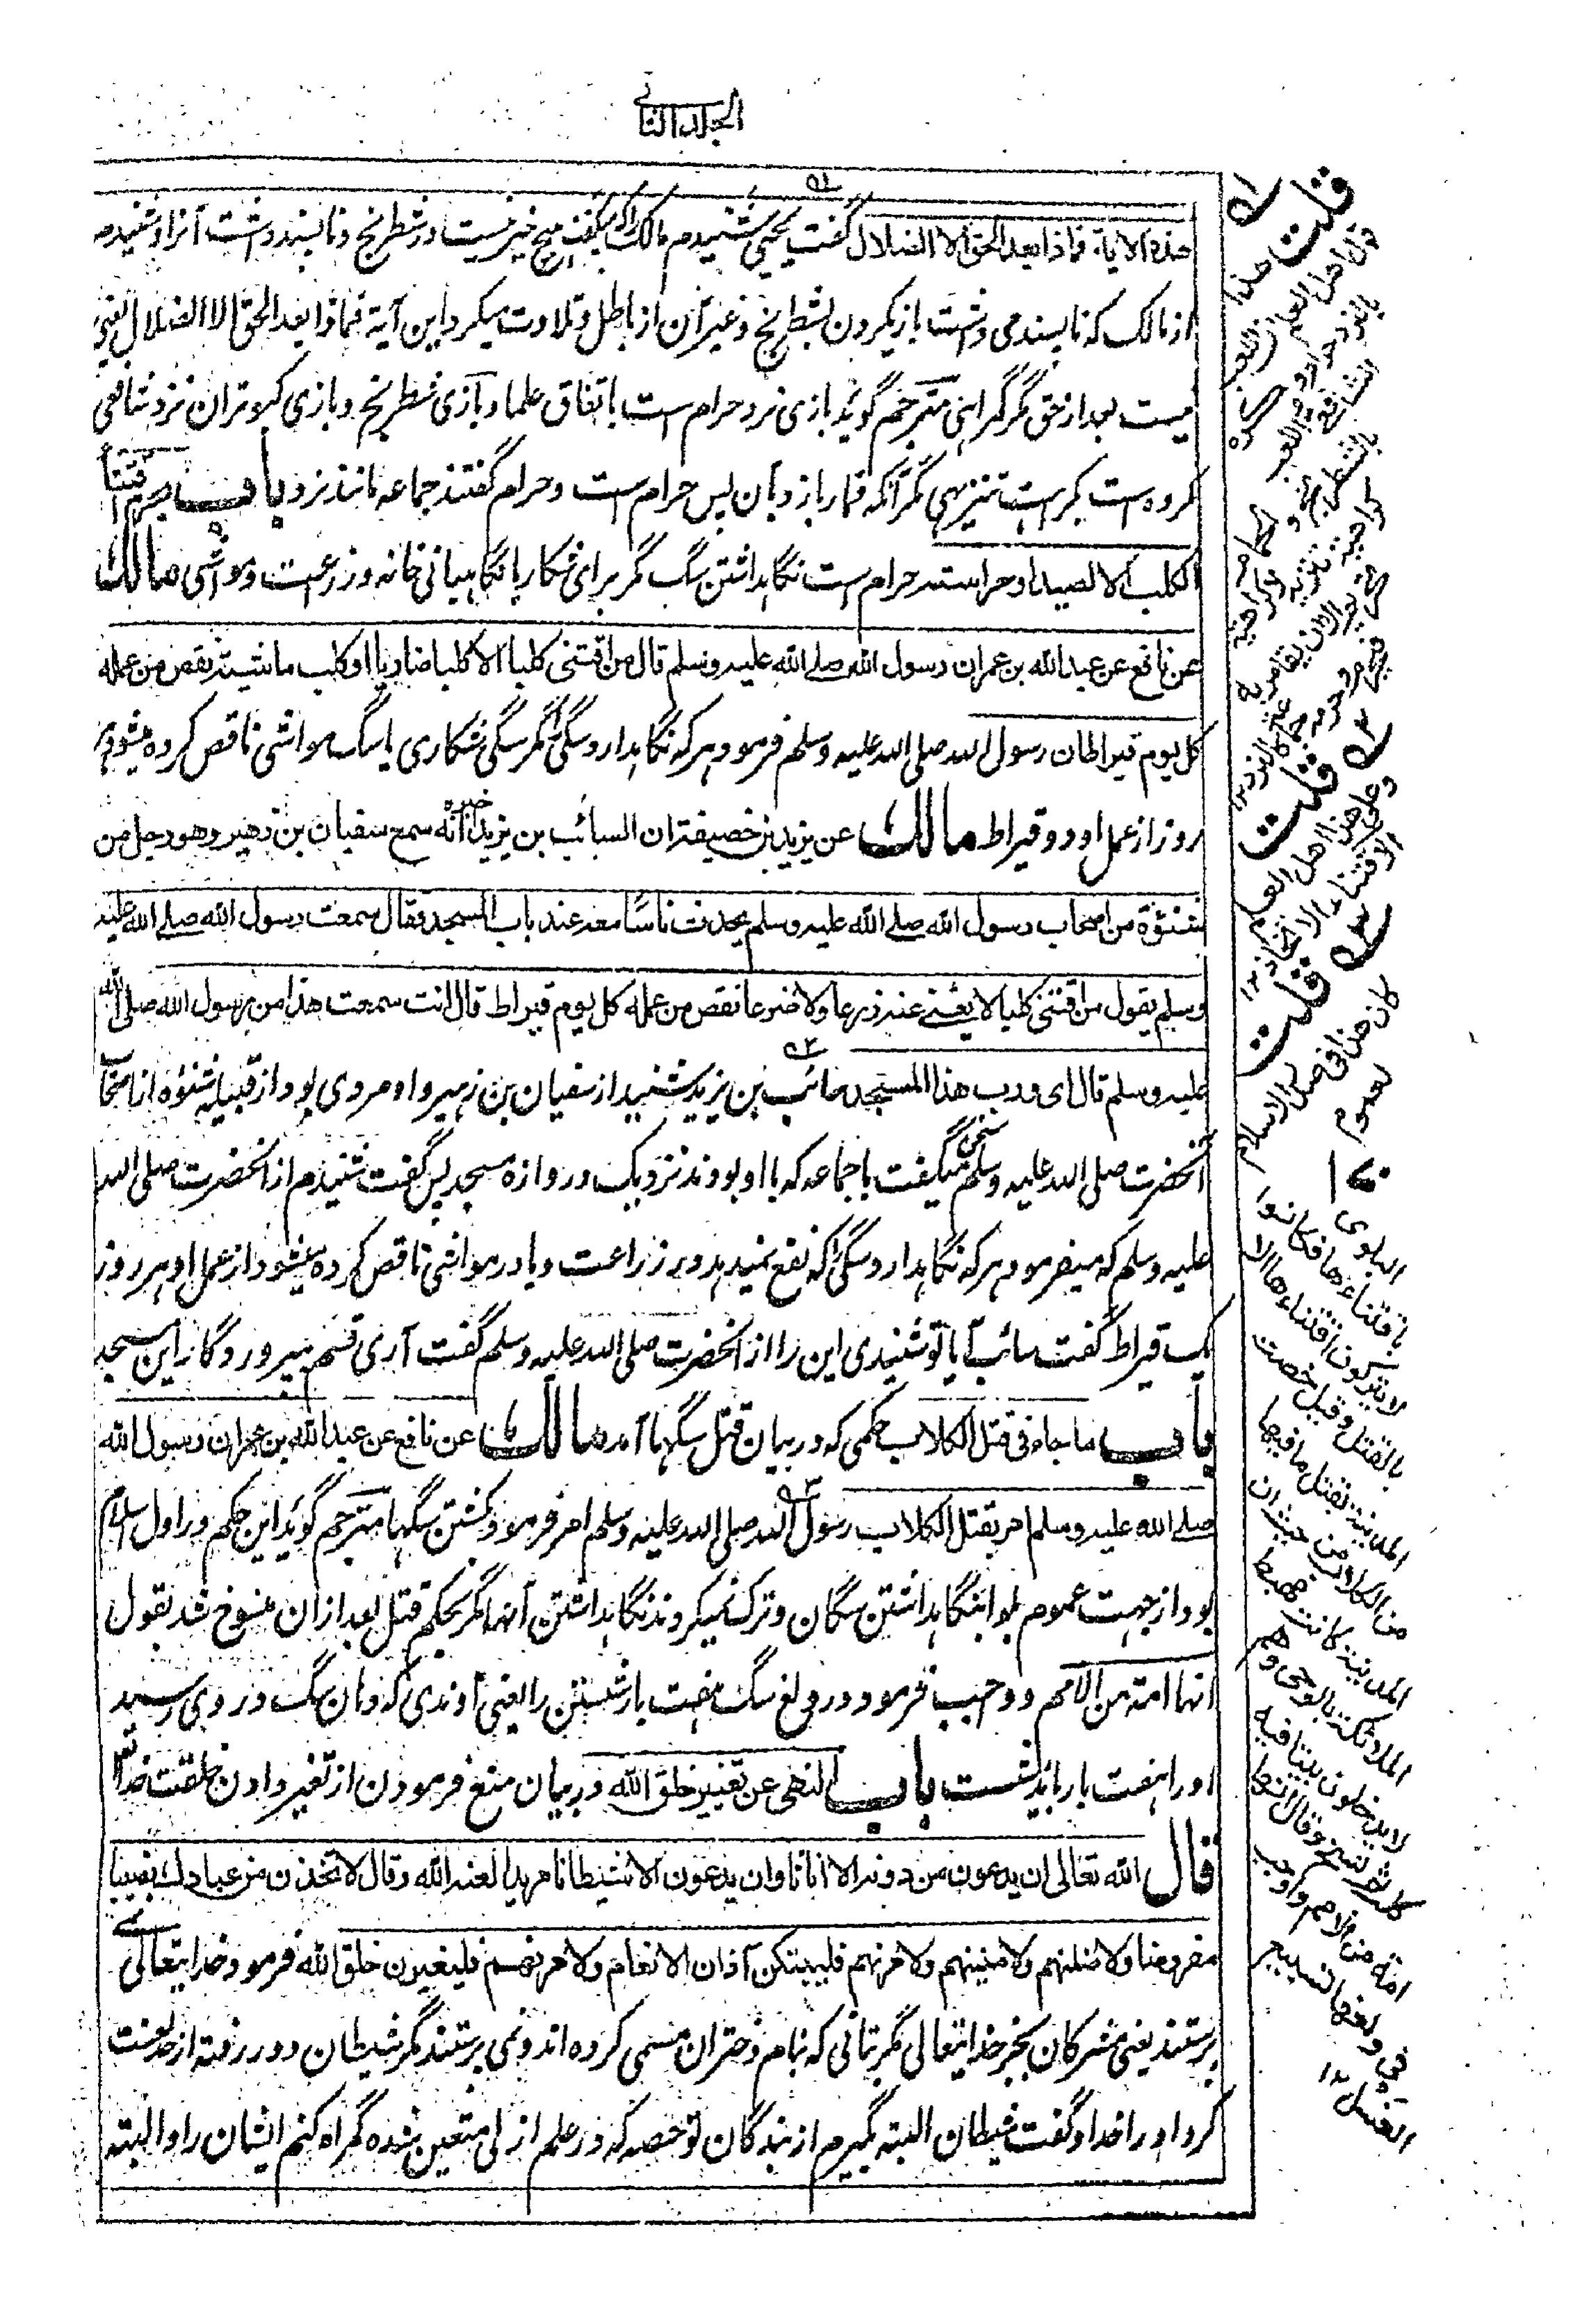 الجلد الثانی
هذه الایة فماذا بعد الحق الا الضلال گفت یحیی شنیدم مالک را که میگفت هیچ خیر نیست در شطرنج و ناپسند داشت آنرا و شنیدم
از مالک که ناپسند می داشت بازیکردن بشطرنج و غیر آن از باطل و تلاوت میکرد این آیة فماذا بعد الحق الا الضلال یعنی
نیست بعد از حق مگر گمراهی مترجم گوید بازی نرد حرام ست باتفاق علما و بازی شطرنج و بازی کبوتران نزد شافعی
مکروه ست بکراهت تنزیهی مگر آنکه قمار بازد بآن پس حرام ست و حرام گفتند جماعه مانند نرد باب اقتنا
الکلب الا لصید او حراسته حرام ست نگاهداشتن سگ مگر برای شکار یا نگاهبانی خانه و زراعت و مواشی مالك
عن نافع عن عبد الله بن عمر ان رسول الله صلے الله علیه وسلم قال من اقتنی کلبا الا کلبا ضاریا او کلب ماشیة نقص من عمله
کل یوم قیراطان رسول الله صلی الله علیه وسلم فرمود هر که نگاهدارد سگی مگر سگی شکاری یا سگ مواشی ناقص کرده میشود هر
روز از عمل او دو قیراط مالك عن یزید بن خصیفة ان السائب بن یزید اخبره انه سمع سفیان بن زهیر وهو رجل من
شنؤة من اصحاب رسول الله صلے الله علیه وسلم یحدث ناسًا معه عند باب المسجد فقال سمعت رسول الله صلے الله علیه
وسلم یقول من اقتنی کلبا لا یغنی عنه زرعا ولا ضرعا نقص من عمله کل یوم قیراط قال انت سمعت هذا من رسول الله صلی الله
علیه وسلم قال ای ورب هذا المسجد سائب بن یزید شنید از سفیان بن زهیر و او مردی بود از قبیله شنؤه از اصحاب
آنحضرت صلی الله علیه وسلم سخن میگفت با جماعه که با او بودند نزدیک دروازه مسجد پس گفت شنیدم از آنحضرت صلی الله
علیه وسلم که میفرمود هر که نگاهدارد سگی را که نفع نمیدهد در زراعت و یا در مواشی ناقص کرده میشود از عمل او هر روز
یک قیراط گفت سائب آیا تو شنیدی این را از آنحضرت صلی الله علیه وسلم گفت آری قسم بپروردگار این مسجد
باب ما جاء فی قتل الکلاب حکمی که در بیان قتل سگها آمد مالك عن نافع عن عبد الله بن عمر ان رسول الله
صلے الله علیه وسلم امر بقتل الکلاب رسول الله صلی الله علیه وسلم امر فرمود بکشتن سگها مترجم گوید این حکم در اول اسلام
بود از جهت عموم بلوا بنگاهداشتن سگان و ترک نمیکردند نگاهداشتن آنها مگر بحکم قتل بعد ازان منسوخ شد بقول
انها امة من الامم و واجب فرمود در ولغ سگ هفت بار شستن را یعنی آوندی که دهان سگ در وی رسید
اورا هفت بار باید شست باب النهی عن تغییر خلق الله در بیان منع فرمودن از تغیر دادن خلقت خدا
قال الله تعالی ان یدعون من دونه الا اناثا وان یدعون الا شیطانا مریدا لعنه الله وقال لاتخذن من عبادك نصیبا
مفروضا ولاضلنهم ولامنینهم ولامرنهم فلیبتکن آذان الانعام ولامرنهم فلیغیرن خلق الله فرمود خدایتعالی نمی
پرستند یعنی مشرکان بجز خدایتعالی مگر بتانی که بنام دختران مسمی کرده اند و نمی پرستند مگر شیطان دور رفته از حد لعنت
کرد او را خدا و گفت شیطان البته بگیرم از بندگان تو حصه که در علم ازلی متعین شده گمراه کنم ایشان را و البته
قلت
هذا
قول اهل العلم ان اللعب
بالنرد حرام و
اللعب
بالشطرنج و الحمام
کراهیة تنزیه
الا ان یقامر به
فیحرم و حرمه جماعة کالنرد
قلت
وعلی هذا اهل العلم
الاقتناء الاتخاذ
قلت
کان هذا فی صدر الاسلام
لعموم
البلوی
باقتناءها فکانوا
لا یترکون اقتناءها الا
بالقتل وقیل خصت
المدینة بقتل ما فیها
من الکلاب من حیث ان
المدینة کانت مهبط
الملائکة بالوحی وهم
لا یدخلون بیتا فیه
کلب ثم نسخ وقال انها
امة من الامم واوجب
فی ولغها تسبیع
الغسل ١٢